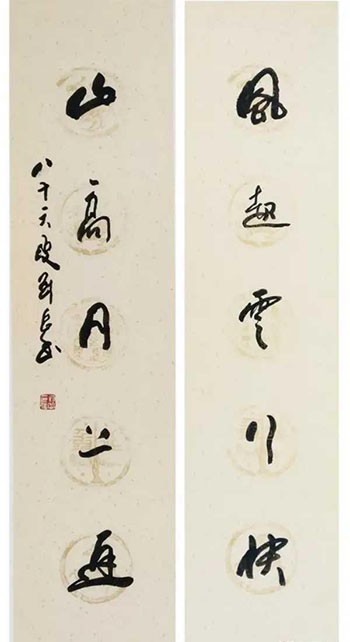 風起雲行快
山高月上遲
八十